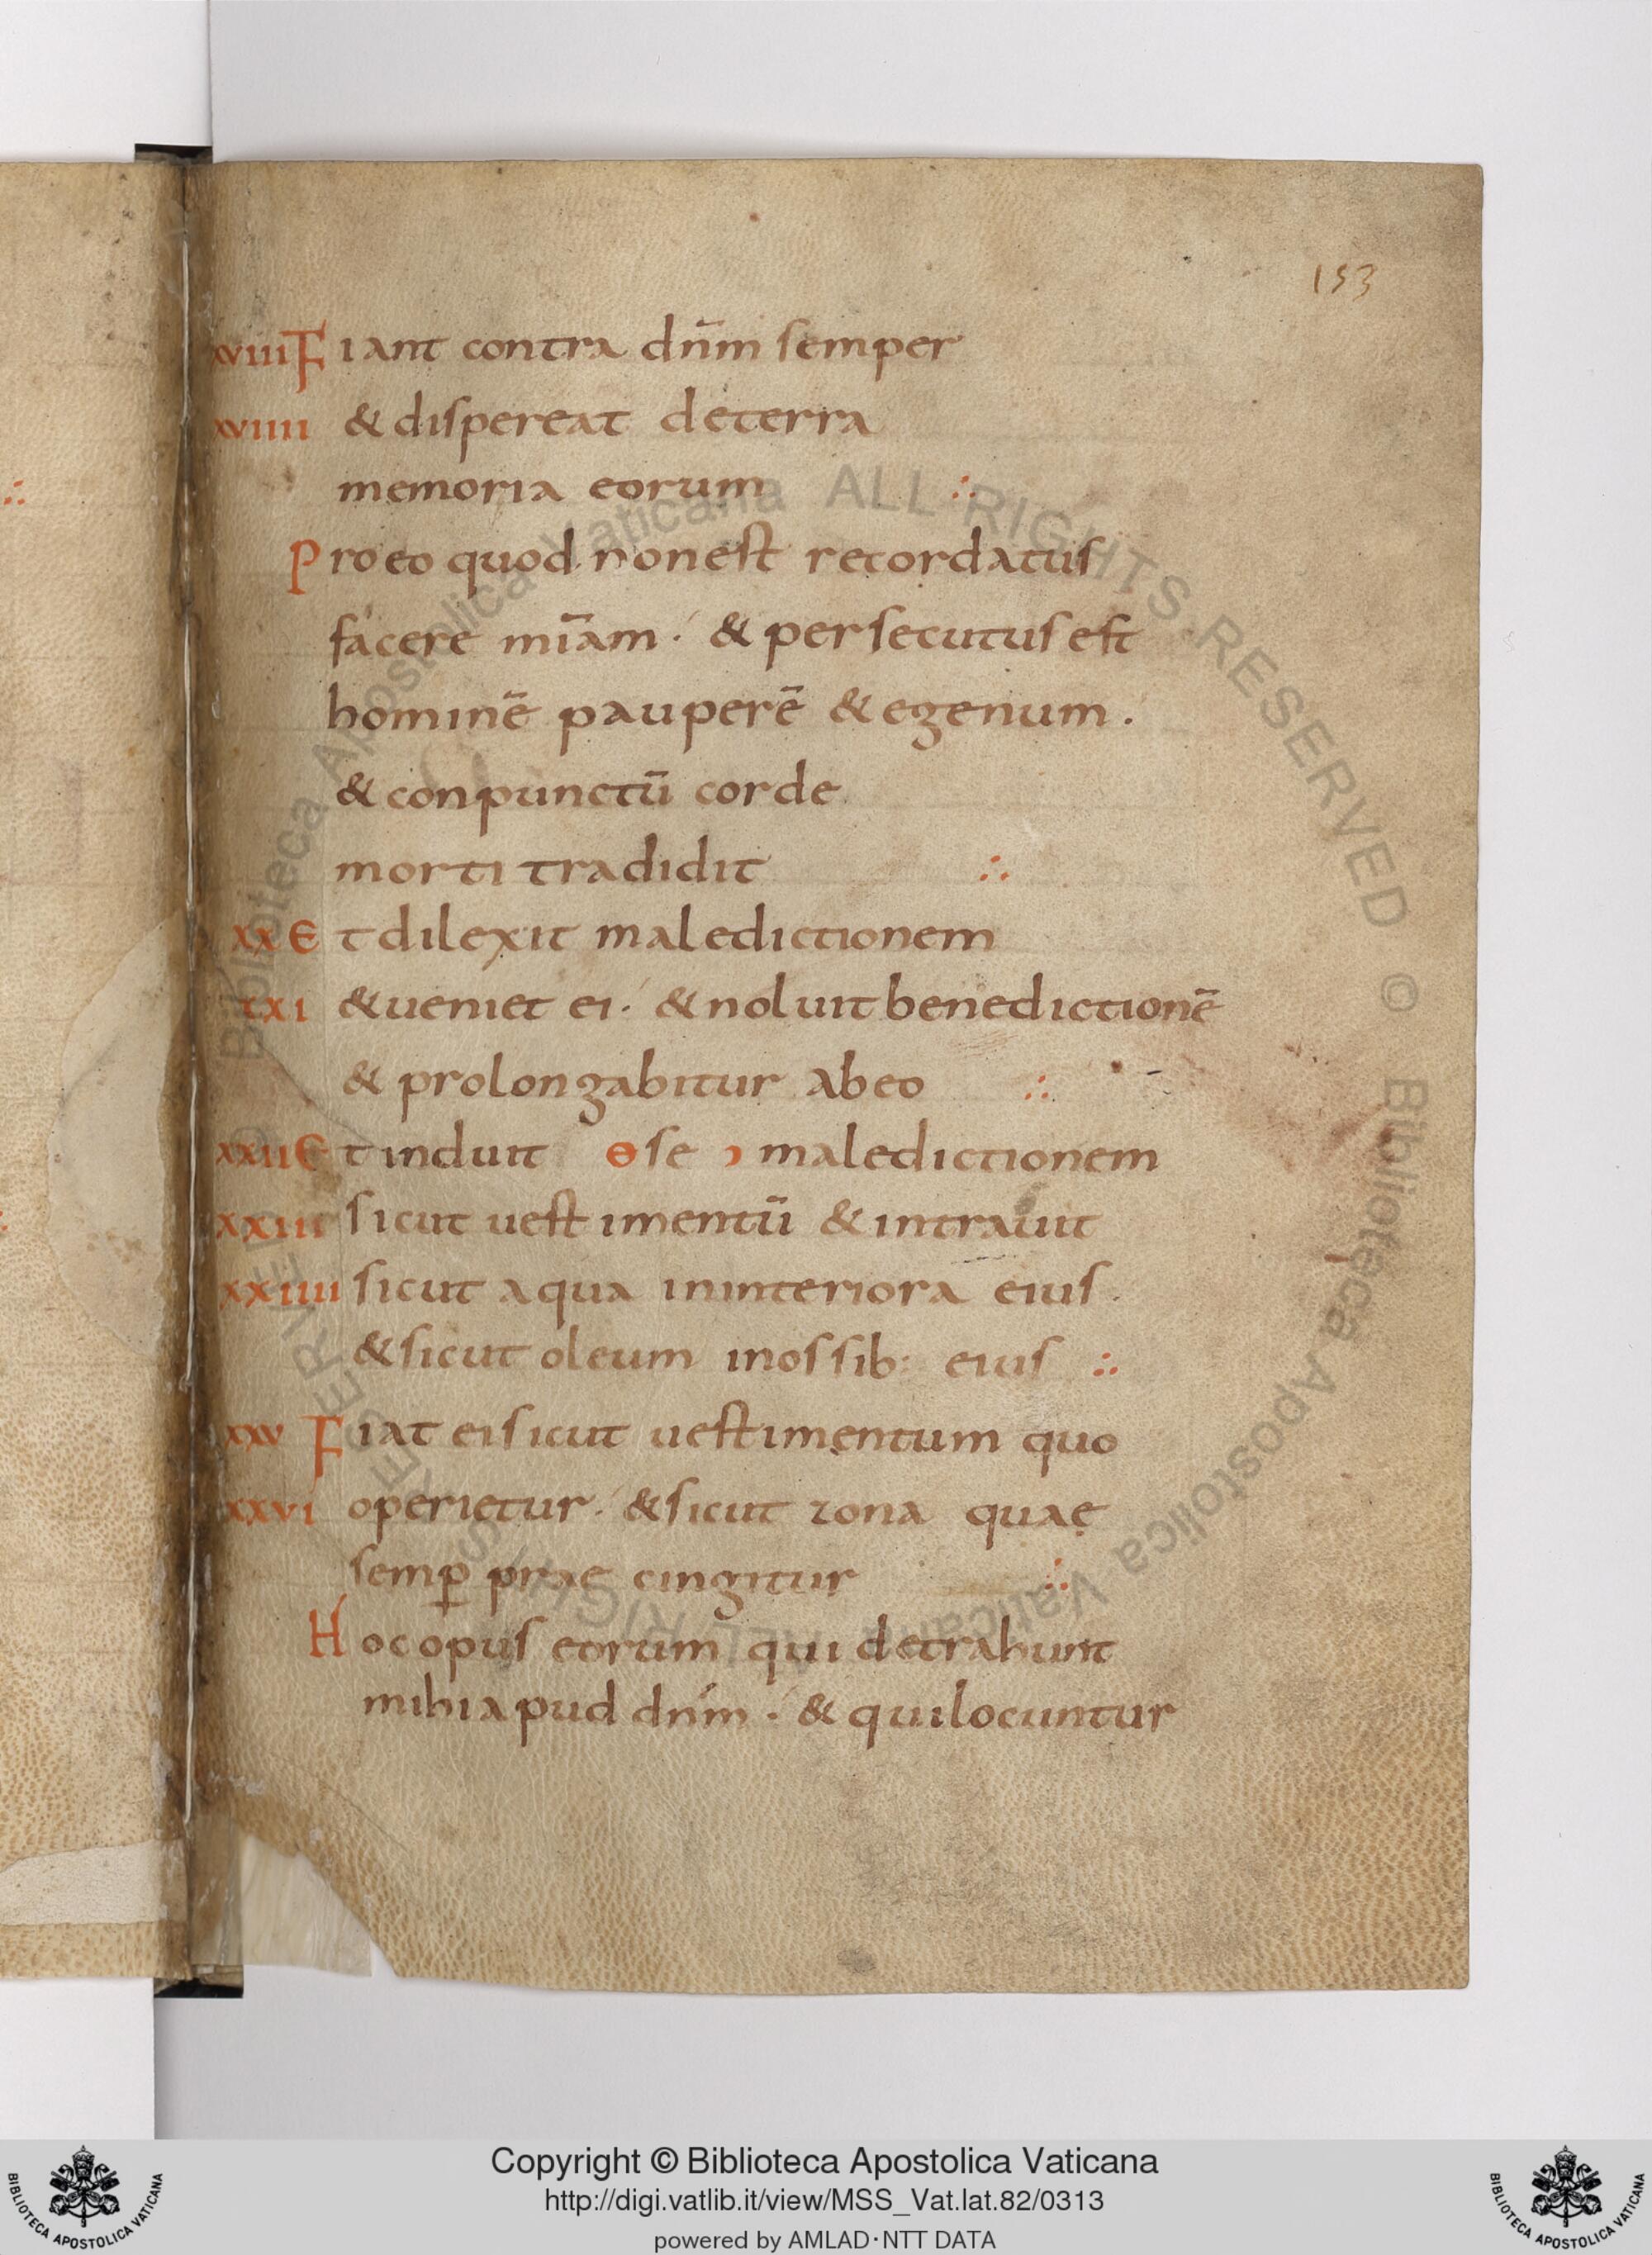 153
xviii Fiant contra dn̄m semper
xviiii & dispereat deterra
memoria eorum ∴
Pro eo quod non est recordatus
facere mīam · & persecutus est
hominē pauperē & egenum .
& conpunctū corde
morti tradidit ∴
xx Et dilexit maledictionem
xxi & ueniet ei · & noluit benedictionē
& prolongabitur ab eo ∴
xxii Et induit ɵ se ɔ maledictionem
xxiii sicut uestimentū & intrauit
xxiiii sicut aqua in interiora eius .
& sicut oleum in ossib: eius ∴
xxv Fiat ei sicut uestimentum quo
xxvi operietur · & sicut zona quae
semꝑ prae cingitur ∴
Hoc opus eorum qui detrahunt
mihi apud dn̄m · & qui locuntur
Biblioteca Apostolica Vaticana ALL RIGHTS RESERVED © Biblioteca Apostolica Vaticana ALL RIGHTS RESERVED ©
Copyright © Biblioteca Apostolica Vaticana
http://digi.vatlib.it/view/MSS_Vat.lat.82/0313
powered by AMLAD·NTT DATA
BIBLIOTECA APOSTOLICA VATICANA
BIBLIOTECA APOSTOLICA VATICANA